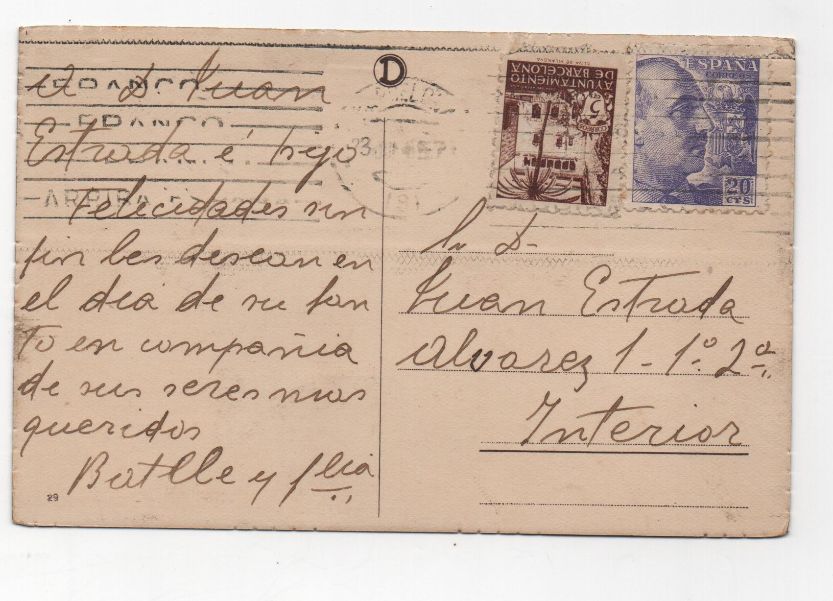 A D. Juan
Estrada é hijo
Felicidades sin
fin les desean en
el dia de su san
to en compañia
de sus seres mas
queridos
Batlle y flia
29
D
FRANCO
FRANCO
ARRIBA
23
AYUNTAMIENTO
DE BARCELONA
5
ESPAÑA
CORREOS
20
CTS
Sr D-
Juan Estrada
Alvarez 1-1º 2ª
Interior